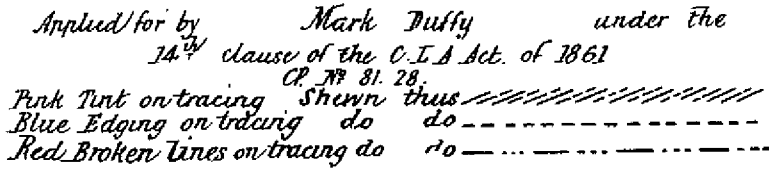 Applied for by Mark Duffy under the
14th clause of the C.L.A Act. of 1861
C.P. Nº 81. 28.
Pink Tint on tracing Shewn thus
Blue Edging on tracing do do
Red Broken Lines on tracing do do